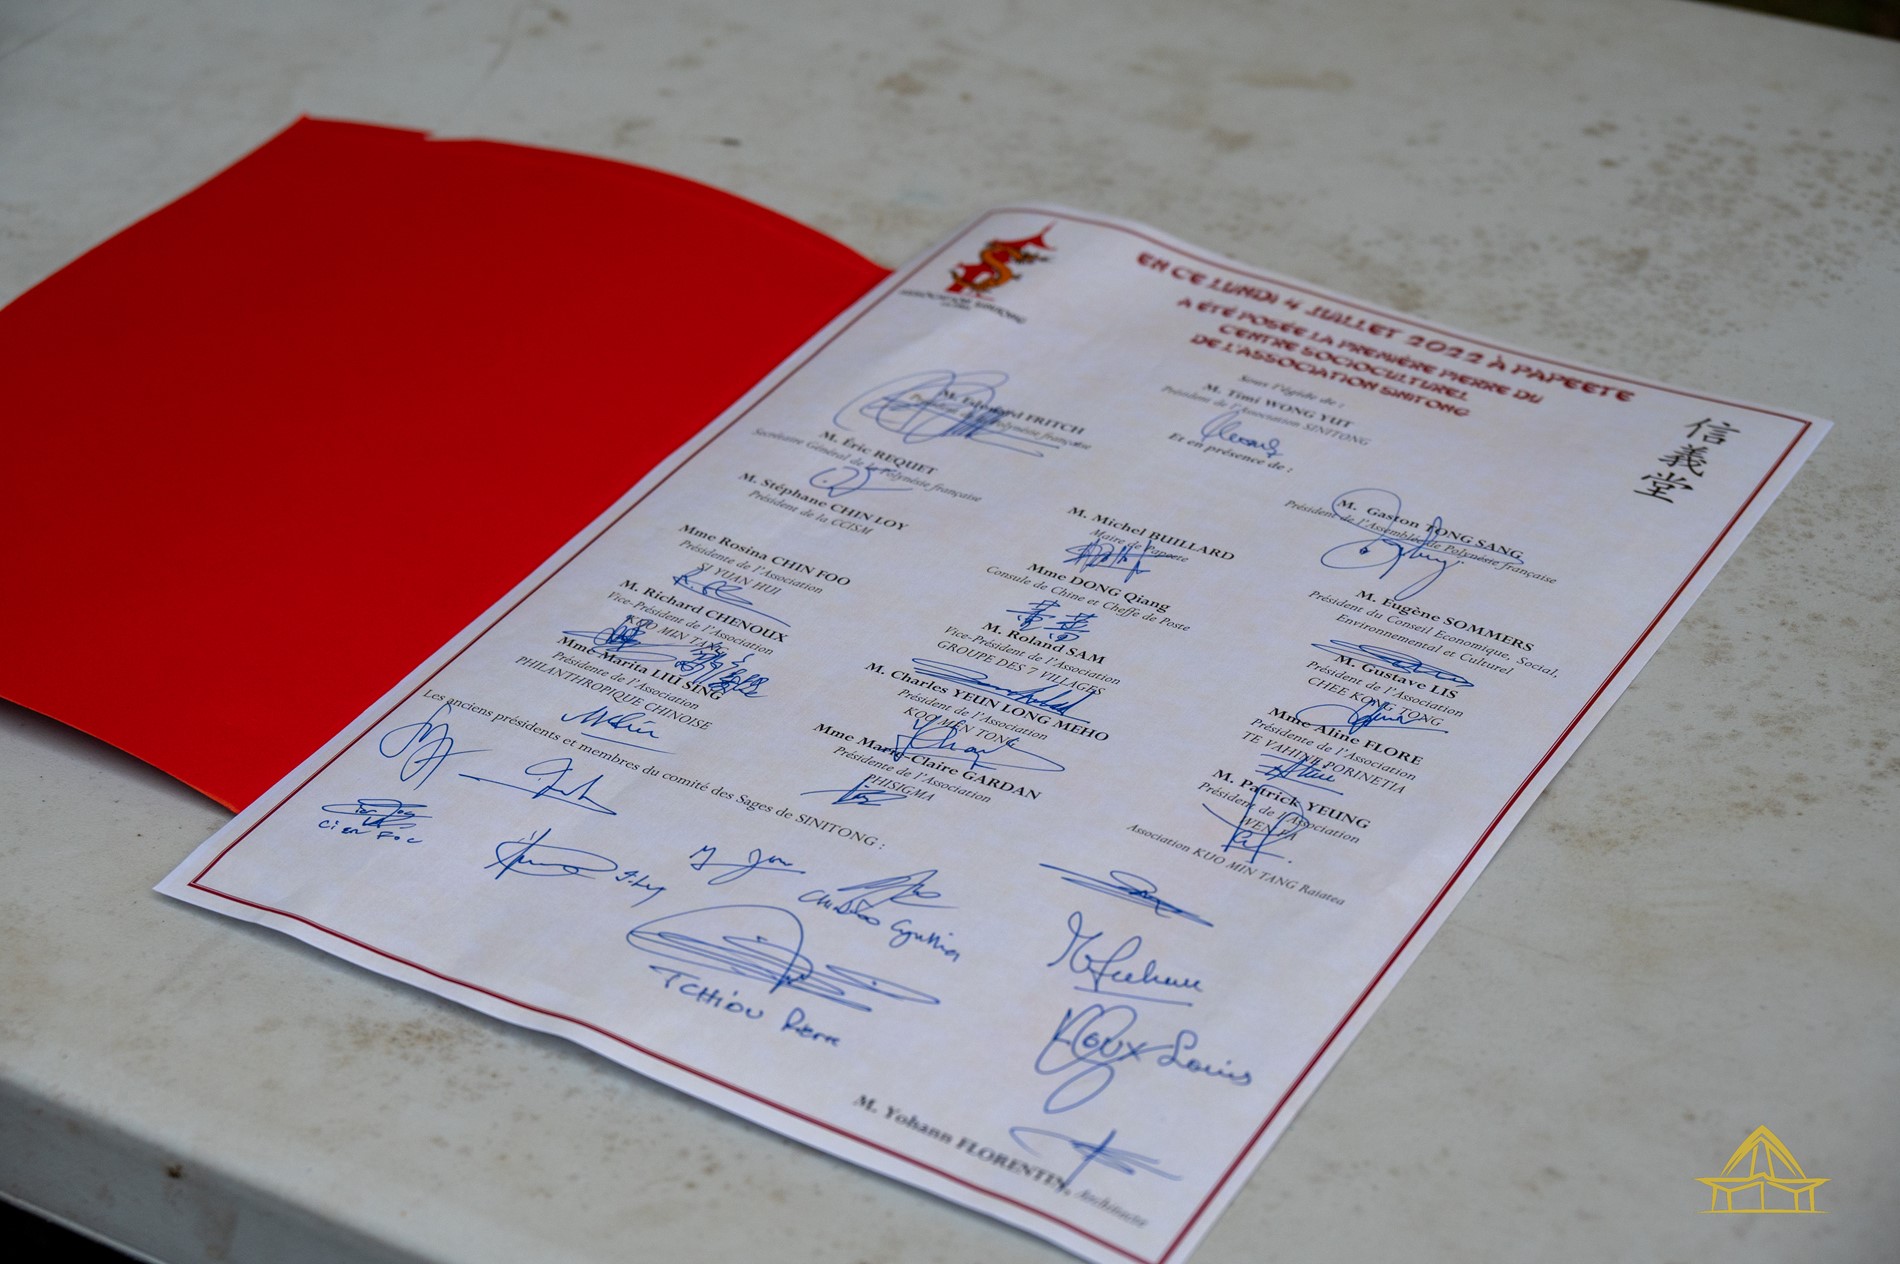 ASSOCIATION SINITONG
EN CE LUNDI 4 JUILLET 2022 À PAPEETE
A ÉTÉ POSÉE LA PREMIÈRE PIERRE DU
CENTRE SOCIOCULTUREL
DE L'ASSOCIATION SINITONG
信義堂
Sous l'égide de :
M. Timi WONG YUT
Président de l'Association SINITONG
Et en présence de :
M. Édouard FRITCH
Président de la Polynésie française
M. Éric REQUET
Secrétaire Général de la Polynésie française
M. Gaston TONG SANG
Président de l'Assemblée de Polynésie française
M. Stéphane CHIN LOY
Président de la CCISM
M. Michel BUILLARD
Maire de Papeete
M. Eugène SOMMERS
Président du Conseil Economique, Social,
Environnemental et Culturel
Mme Rosina CHIN FOO
Présidente de l'Association
SI YUAN HUI
Mme DONG Qiang
Consule de Chine et Cheffe de Poste
M. Gustave LIS
Président de l'Association
CHEE KONG TONG
M. Richard CHENOUX
Vice-Président de l'Association
KUO MIN TANG
M. Roland SAM
Vice-Président de l'Association
GROUPE DES 7 VILLAGES
Mme Aline FLORE
Présidente de l'Association
TE VAHINE PORINETIA
Mme Marita LIU SING
Présidente de l'Association
PHILANTHROPIQUE CHINOISE
M. Charles YEUN LONG MEHO
Président de l'Association
KOO MEN TONG
M. Patrick YEUNG
Président de l'Association
WEN FA
Mme Marie-Claire GARDAN
Présidente de l'Association
PHISIGMA
Association KUO MIN TANG Raiatea
Les anciens présidents et membres du comité des Sages de SINITONG :
TCHIOU Pierre
ROUX Louis
M. Yohann FLORENTIN, Architecte